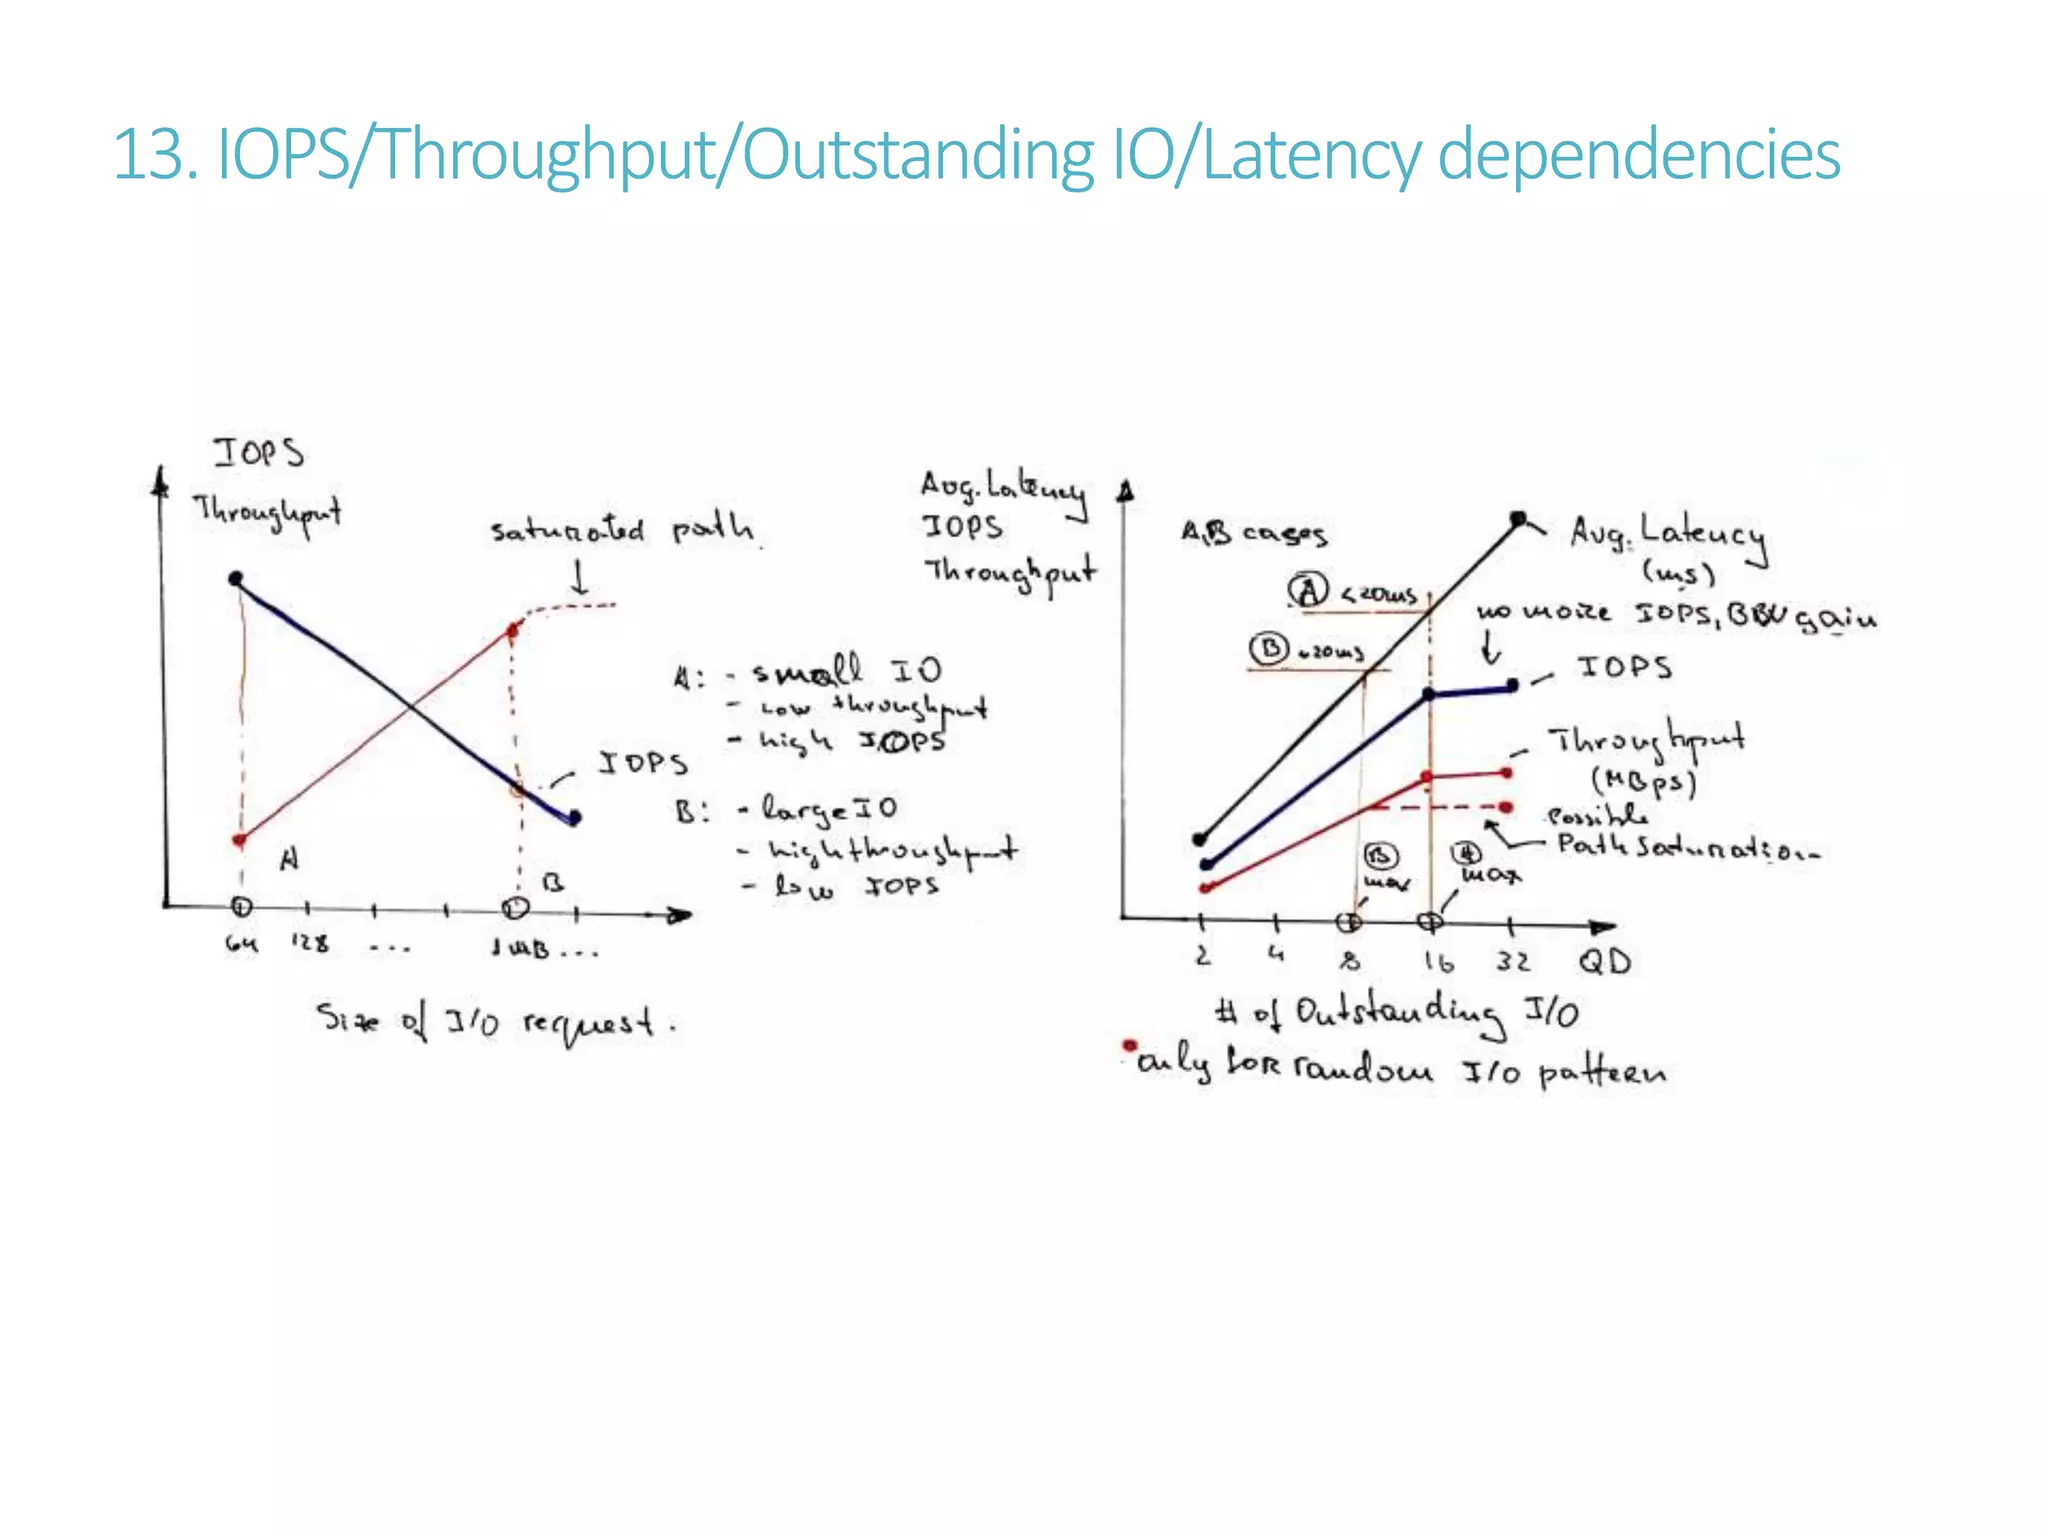 13. IOPS/Throughput/Outstanding IO/Latency dependencies
IOPS
Throughput
saturated path
A: - small IO
- Low throughput
- high IOPS
IOPS
B: - large IO
- high throughput
- low IOPS
A
B
64 128 ... 1MB ...
Size of I/O request.
Avg. Latency
IOPS
Throughput
A,B cases
Avg. Latency
(ms)
A <20ms
no more IOPS, BBU gain
B 20ms
IOPS
Throughput
(MBps)
Possible
Path Saturation
B
max
A
max
2 4 8 16 32 QD
# of Outstanding I/O
only for random I/O pattern